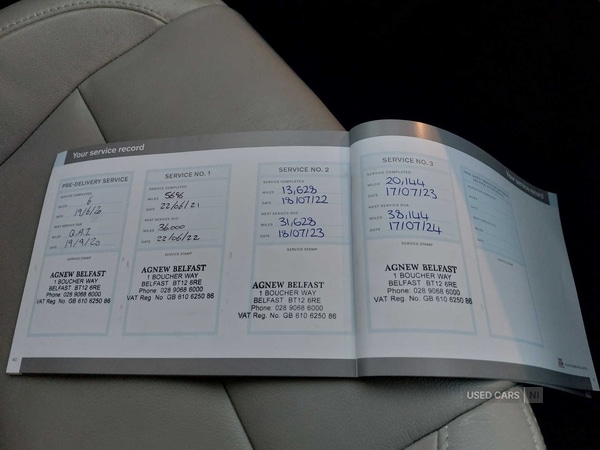 Your service record
PRE-DELIVERY SERVICE
MILES 6
DATE
NEXT SERVICE DUE
MILES Q.A.I
DATE 19/9/20
SERVICE STAMP
AGNEW BELFAST
1 BOUCHER WAY
BELFAST BT12 6RE
Phone: 028 9068 6000
VAT Reg No. GB 610 6250 86
SERVICE NO. 1
SERVICE COMPLETED
MILES 5696
DATE 22/06/21
NEXT SERVICE DUE
MILES 36000
DATE 22/06/22
SERVICE STAMP
AGNEW BELFAST
1 BOUCHER WAY
BELFAST BT12 6RE
Phone: 028 9068 6000
VAT Reg. No. GB 610 6250 86
SERVICE NO. 2
SERVICE COMPLETED
MILES 13,628
DATE 18/07/22
NEXT SERVICE DUE
MILES 31,628
DATE 18/07/23
SERVICE STAMP
AGNEW BELFAST
1 BOUCHER WAY
BELFAST BT12 6RE
Phone: 028 9068 6000
VAT Reg. No. GB 610 6250 86
SERVICE NO. 3
SERVICE COMPLETED
MILES 20,144
DATE 17/07/23
NEXT SERVICE DUE
MILES 38,144
DATE 17/07/24
SERVICE STAMP
AGNEW BELFAST
1 BOUCHER WAY
BELFAST BT12 6RE
Phone: 028 9068 6000
VAT Reg. No. GB 610 6250 86
Your service record
USED CARS NI